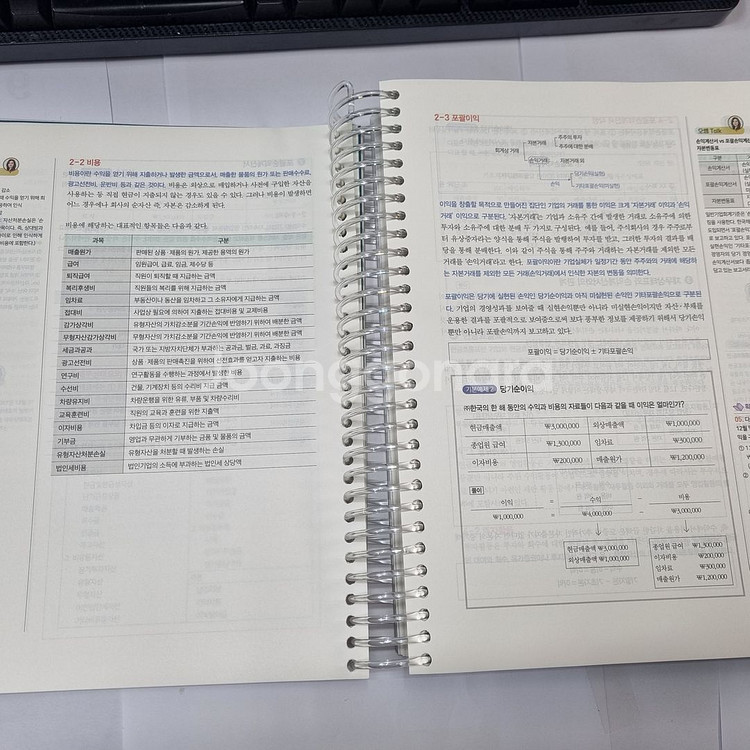 2-2 비용
비용이란 수익을 얻기 위해 지출하거나 발생한 금액으로서, 매출한 물품의 원가 또는 판매수수료,
광고선전비, 운반비 등과 같은 것이다. 비용은 외상으로 매입하거나 사전에 구입한 자산을
사용하는 등 직접 현금이 지출되지 않는 경우도 있을 수 있다. 그러나 비용이 발생하면
어느 경우에나 회사의 순자산 즉, 자본은 감소하게 된다.
비용에 해당하는 대표적인 항목들은 다음과 같다.
과목 구분
매출원가 판매된 상품·제품의 원가, 제공한 용역의 원가
급여 임원급여, 급료, 임금, 제수당 등
퇴직급여 직원이 퇴직할 때 지급하는 금액
복리후생비 직원들의 복리를 위해 지급하는 금액
임차료 부동산이나 동산을 임차하고 그 소유자에게 지급하는 금액
접대비 사업상 필요에 의하여 지출하는 접대비용 및 교제비용
감가상각비 유형자산의 가치감소분을 기간손익에 반영하기 위하여 배분한 금액
무형자산감가상각비 무형자산의 가치감소분을 기간손익에 반영하기 위하여 배분한 금액
세금과공과 국가 또는 지방자치단체가 부과하는 공과금, 벌금, 과료, 과징금
광고선전비 상품·제품의 판매촉진을 위하여 선전효과를 얻고자 지출하는 비용
연구비 연구활동을 수행하는 과정에서 발생한 비용
수선비 건물, 기계장치 등의 수리비 지급 금액
차량유지비 차량운행을 위한 유류, 부품 및 차량수리비
교육훈련비 직원의 교육과 훈련을 위한 지출액
이자비용 차입금 등의 이자로 지급하는 금액
기부금 영업과 무관하게 기부하는 금품 및 물품의 금액
유형자산처분손실 유형자산을 처분할 때 발생하는 손실
법인세비용 법인기업의 소득에 부과하는 법인세 상당액
2-3 포괄이익
회계상 거래
자본거래
주주의 투자
주주에 대한 분배
손익거래
자본거래 외
손익
당기손익(실현)
기타포괄손익(미실현)
이익을 창출할 목적으로 만들어진 집단인 기업의 거래를 통한 이익은 크게 '자본거래' 이익과 '손익
거래' 이익으로 구분된다. '자본거래'는 기업과 소유주 간에 발생한 거래로 소유주에 의한
투자와 소유주에 대한 분배 두 가지로 구성된다. 예를 들어, 주식회사의 경우 주주로부
터 유상증자라는 양식을 통해 주식을 발행하여 투자를 받고, 그러한 투자의 결과를 배
당을 통해 분배한다. 이와 같이 주식을 통해 주주와 거래하는 자본거래를 제외한 모든
거래를 '손익거래'라고 한다. 포괄이익이란 기업실체가 일정기간 동안 주주와의 거래에 해당하
는 자본거래를 제외한 모든 거래(손익거래)에서 인식한 자본의 변동을 의미한다.
포괄이익은 당기에 실현된 손익인 당기순이익과 아직 미실현된 손익인 기타포괄손익으로 구분된
다. 기업의 경영성과를 보여줄 때 실현손익뿐만 아니라 미실현손익이지만 자산·부채를
운용한 결과를 포괄적으로 보여줌으로써 보다 풍부한 정보를 제공하기 위해서 당기순이익
뿐만 아니라 포괄이익까지 보고하고 있다.
포괄이익 = 당기순이익 ± 기타포괄손익
기본예제 당기순이익
㈜한국의 한 해 동안의 수익과 비용의 자료들이 다음과 같을 때 이익은 얼마인가?
현금매출액 ₩3,000,000 외상매출액 ₩1,000,000
종업원 급여 ₩1,300,000 임차료 ₩300,000
이자비용 ₩200,000 매출원가 ₩1,200,000
풀이
이익 = 수익 - 비용
₩1,000,000 = ₩4,000,000 - ₩3,000,000
현금매출액 ₩3,000,000
외상매출액 ₩1,000,000
종업원 급여 ₩1,300,000
이자비용 ₩200,000
임차료 ₩300,000
매출원가 ₩1,200,000
오쌤 Talk
손익계산서 vs 포괄손익계산
자본변동표
구분
손익계산서
포괄손익계산서
자본변동표
songgonara